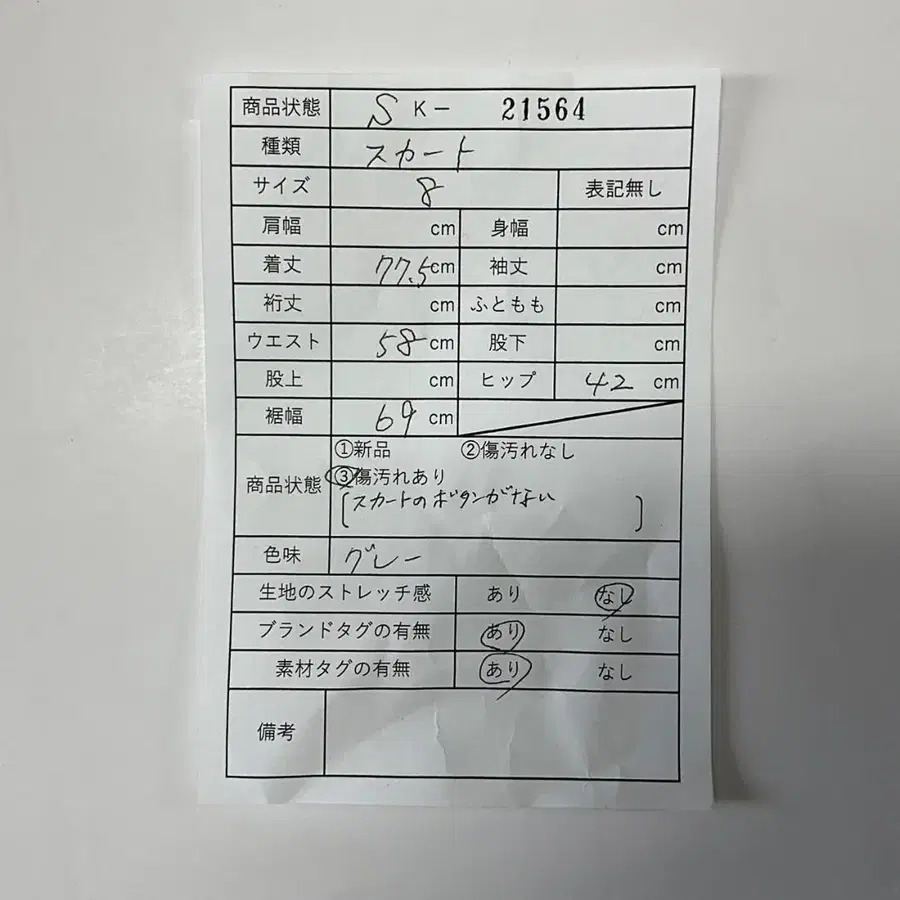 商品状態 S K− 21564
種類 スカート
サイズ 8 表記無し
肩幅 cm 身幅 cm
着丈 77.5cm 袖丈 cm
裄丈 cm ふともも cm
ウエスト 58 cm 股下 cm
股上 cm ヒップ 42 cm
裾幅 69 cm
商品状態 ①新品 ②傷汚れなし
③傷汚れあり
[スカートのボタンがない ]
色味 グレー
生地のストレッチ感 あり なし
ブランドタグの有無 あり なし
素材タグの有無 あり なし
備考